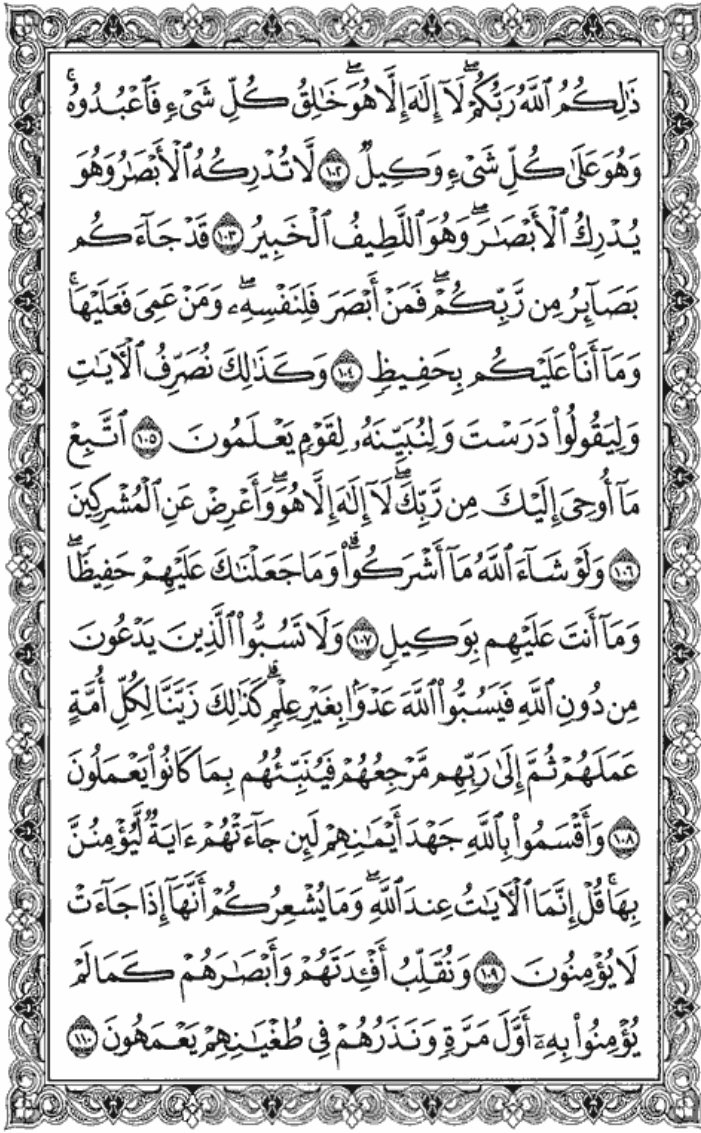 ذَٰلِكُمُ ٱللَّهُ رَبُّكُمْ ۖ لَآ إِلَٰهَ إِلَّا هُوَ ۖ خَٰلِقُ كُلِّ شَىْءٍ فَٱعْبُدُوهُ ۚ
وَهُوَ عَلَىٰ كُلِّ شَىْءٍ وَكِيلٌ ١٠٢ لَّا تُدْرِكُهُ ٱلْأَبْصَٰرُ وَهُوَ
يُدْرِكُ ٱلْأَبْصَٰرَ ۖ وَهُوَ ٱللَّطِيفُ ٱلْخَبِيرُ ١٠٣ قَدْ جَآءَكُم
بَصَآئِرُ مِن رَّبِّكُمْ ۖ فَمَنْ أَبْصَرَ فَلِنَفْسِهِۦ ۖ وَمَنْ عَمِىَ فَعَلَيْهَا ۚ
وَمَآ أَنَا۠ عَلَيْكُم بِحَفِيظٍ ١٠٤ وَكَذَٰلِكَ نُصَرِّفُ ٱلْـَٔايَٰتِ
وَلِيَقُولُوا۟ دَرَسْتَ وَلِنُبَيِّنَهُۥ لِقَوْمٍ يَعْلَمُونَ ١٠٥ ٱتَّبِعْ
مَآ أُوحِىَ إِلَيْكَ مِن رَّبِّكَ ۖ لَآ إِلَٰهَ إِلَّا هُوَ ۖ وَأَعْرِضْ عَنِ ٱلْمُشْرِكِينَ
١٠٦ وَلَوْ شَآءَ ٱللَّهُ مَآ أَشْرَكُوا۟ ۗ وَمَا جَعَلْنَٰكَ عَلَيْهِمْ حَفِيظًا ۖ
وَمَآ أَنتَ عَلَيْهِم بِوَكِيلٍ ١٠٧ وَلَا تَسُبُّوا۟ ٱلَّذِينَ يَدْعُونَ
مِن دُونِ ٱللَّهِ فَيَسُبُّوا۟ ٱللَّهَ عَدْوًۢا بِغَيْرِ عِلْمٍ ۗ كَذَٰلِكَ زَيَّنَّا لِكُلِّ أُمَّةٍ
عَمَلَهُمْ ثُمَّ إِلَىٰ رَبِّهِم مَّرْجِعُهُمْ فَيُنَبِّئُهُم بِمَا كَانُوا۟ يَعْمَلُونَ
١٠٨ وَأَقْسَمُوا۟ بِٱللَّهِ جَهْدَ أَيْمَٰنِهِمْ لَئِن جَآءَتْهُمْ ءَايَةٌ لَّيُؤْمِنُنَّ
بِهَا ۚ قُلْ إِنَّمَا ٱلْـَٔايَٰتُ عِندَ ٱللَّهِ ۖ وَمَا يُشْعِرُكُمْ أَنَّهَآ إِذَا جَآءَتْ
لَا يُؤْمِنُونَ ١٠٩ وَنُقَلِّبُ أَفْـِٔدَتَهُمْ وَأَبْصَٰرَهُمْ كَمَا لَمْ
يُؤْمِنُوا۟ بِهِۦٓ أَوَّلَ مَرَّةٍ وَنَذَرُهُمْ فِى طُغْيَٰنِهِمْ يَعْمَهُونَ ١١٠